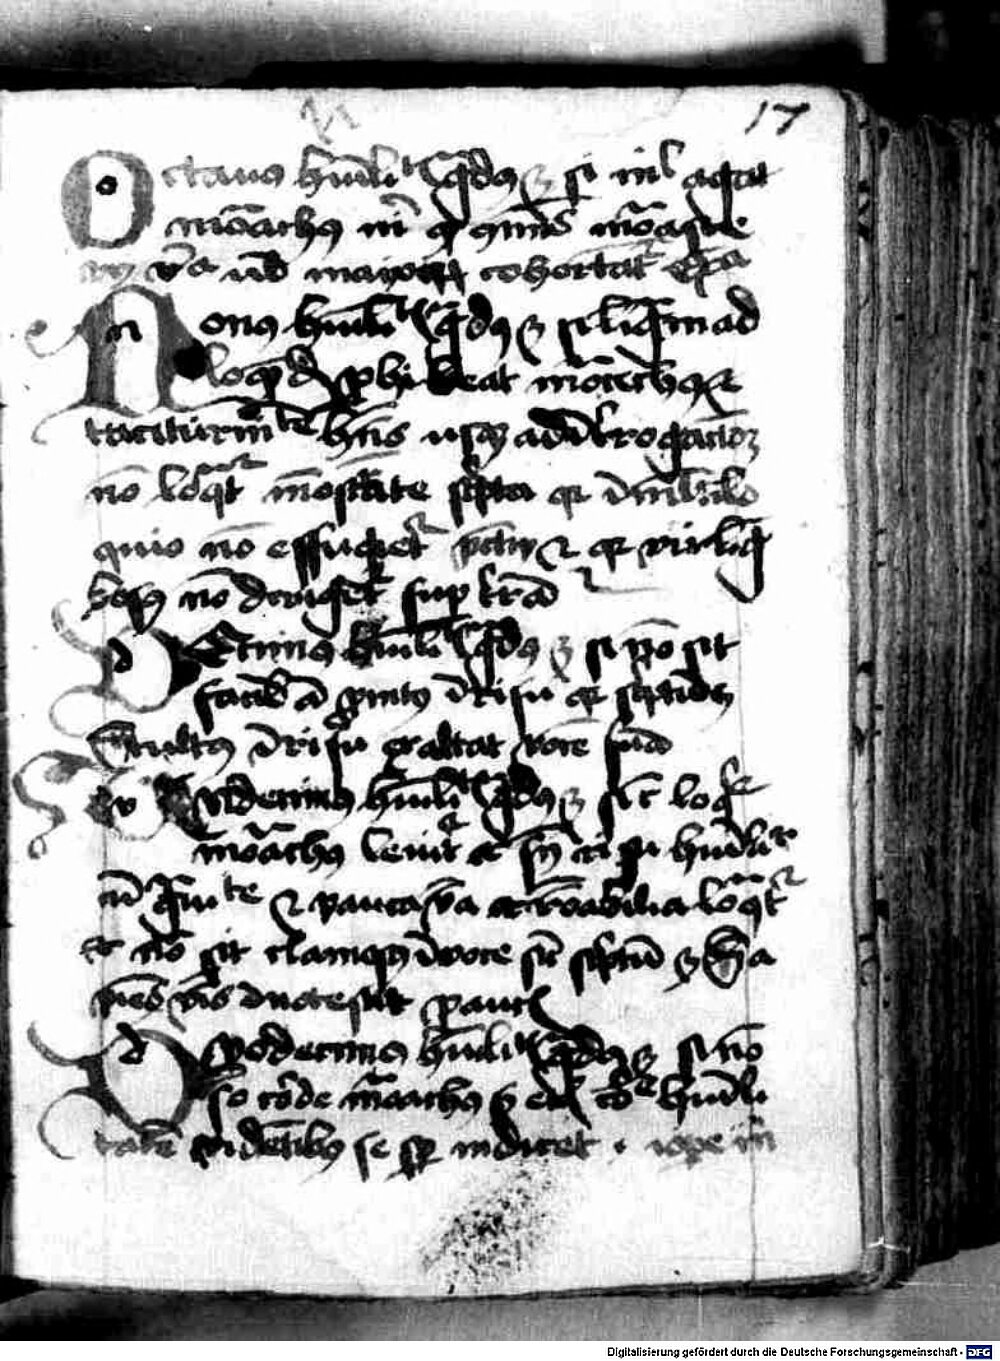 17
Octauus hūilitatis gradus est si nil agat
monachus nisi quod cōmunis monasterii
regula uel maiorum cohortantur exempla
Nonus hūilitatis gradus est si linguam ad
loquendum prohibeat monachus et
taciturnitatem habens usque ad interrogationem
non loquatur monstrante scriptura quia in multiloquio
non effugietur peccatum et quia vir linguosus
non dirigetur super terram
Decimus hūilitatis gradus est si non sit
facilis ac promptus in risu quia scriptum est
Stultus in risu exaltat vocem suam
Vndecimus hūilitatis gradus est si cum loquitur
monachus leniter et sine risu humiliter
cum grauitate et pauca verba et rationabilia loquatur
et non sit clamosus in voce sicut scriptum est Sapiens
verbis innotescit paucis
Duodecimus hūilitatis gradus est si non
solo corde monachus sed etiam corpore humilitatem
videntibus se semper indicet . id est in opere
Digitalisierung gefördert durch die Deutsche Forschungsgemeinschaft - DFG